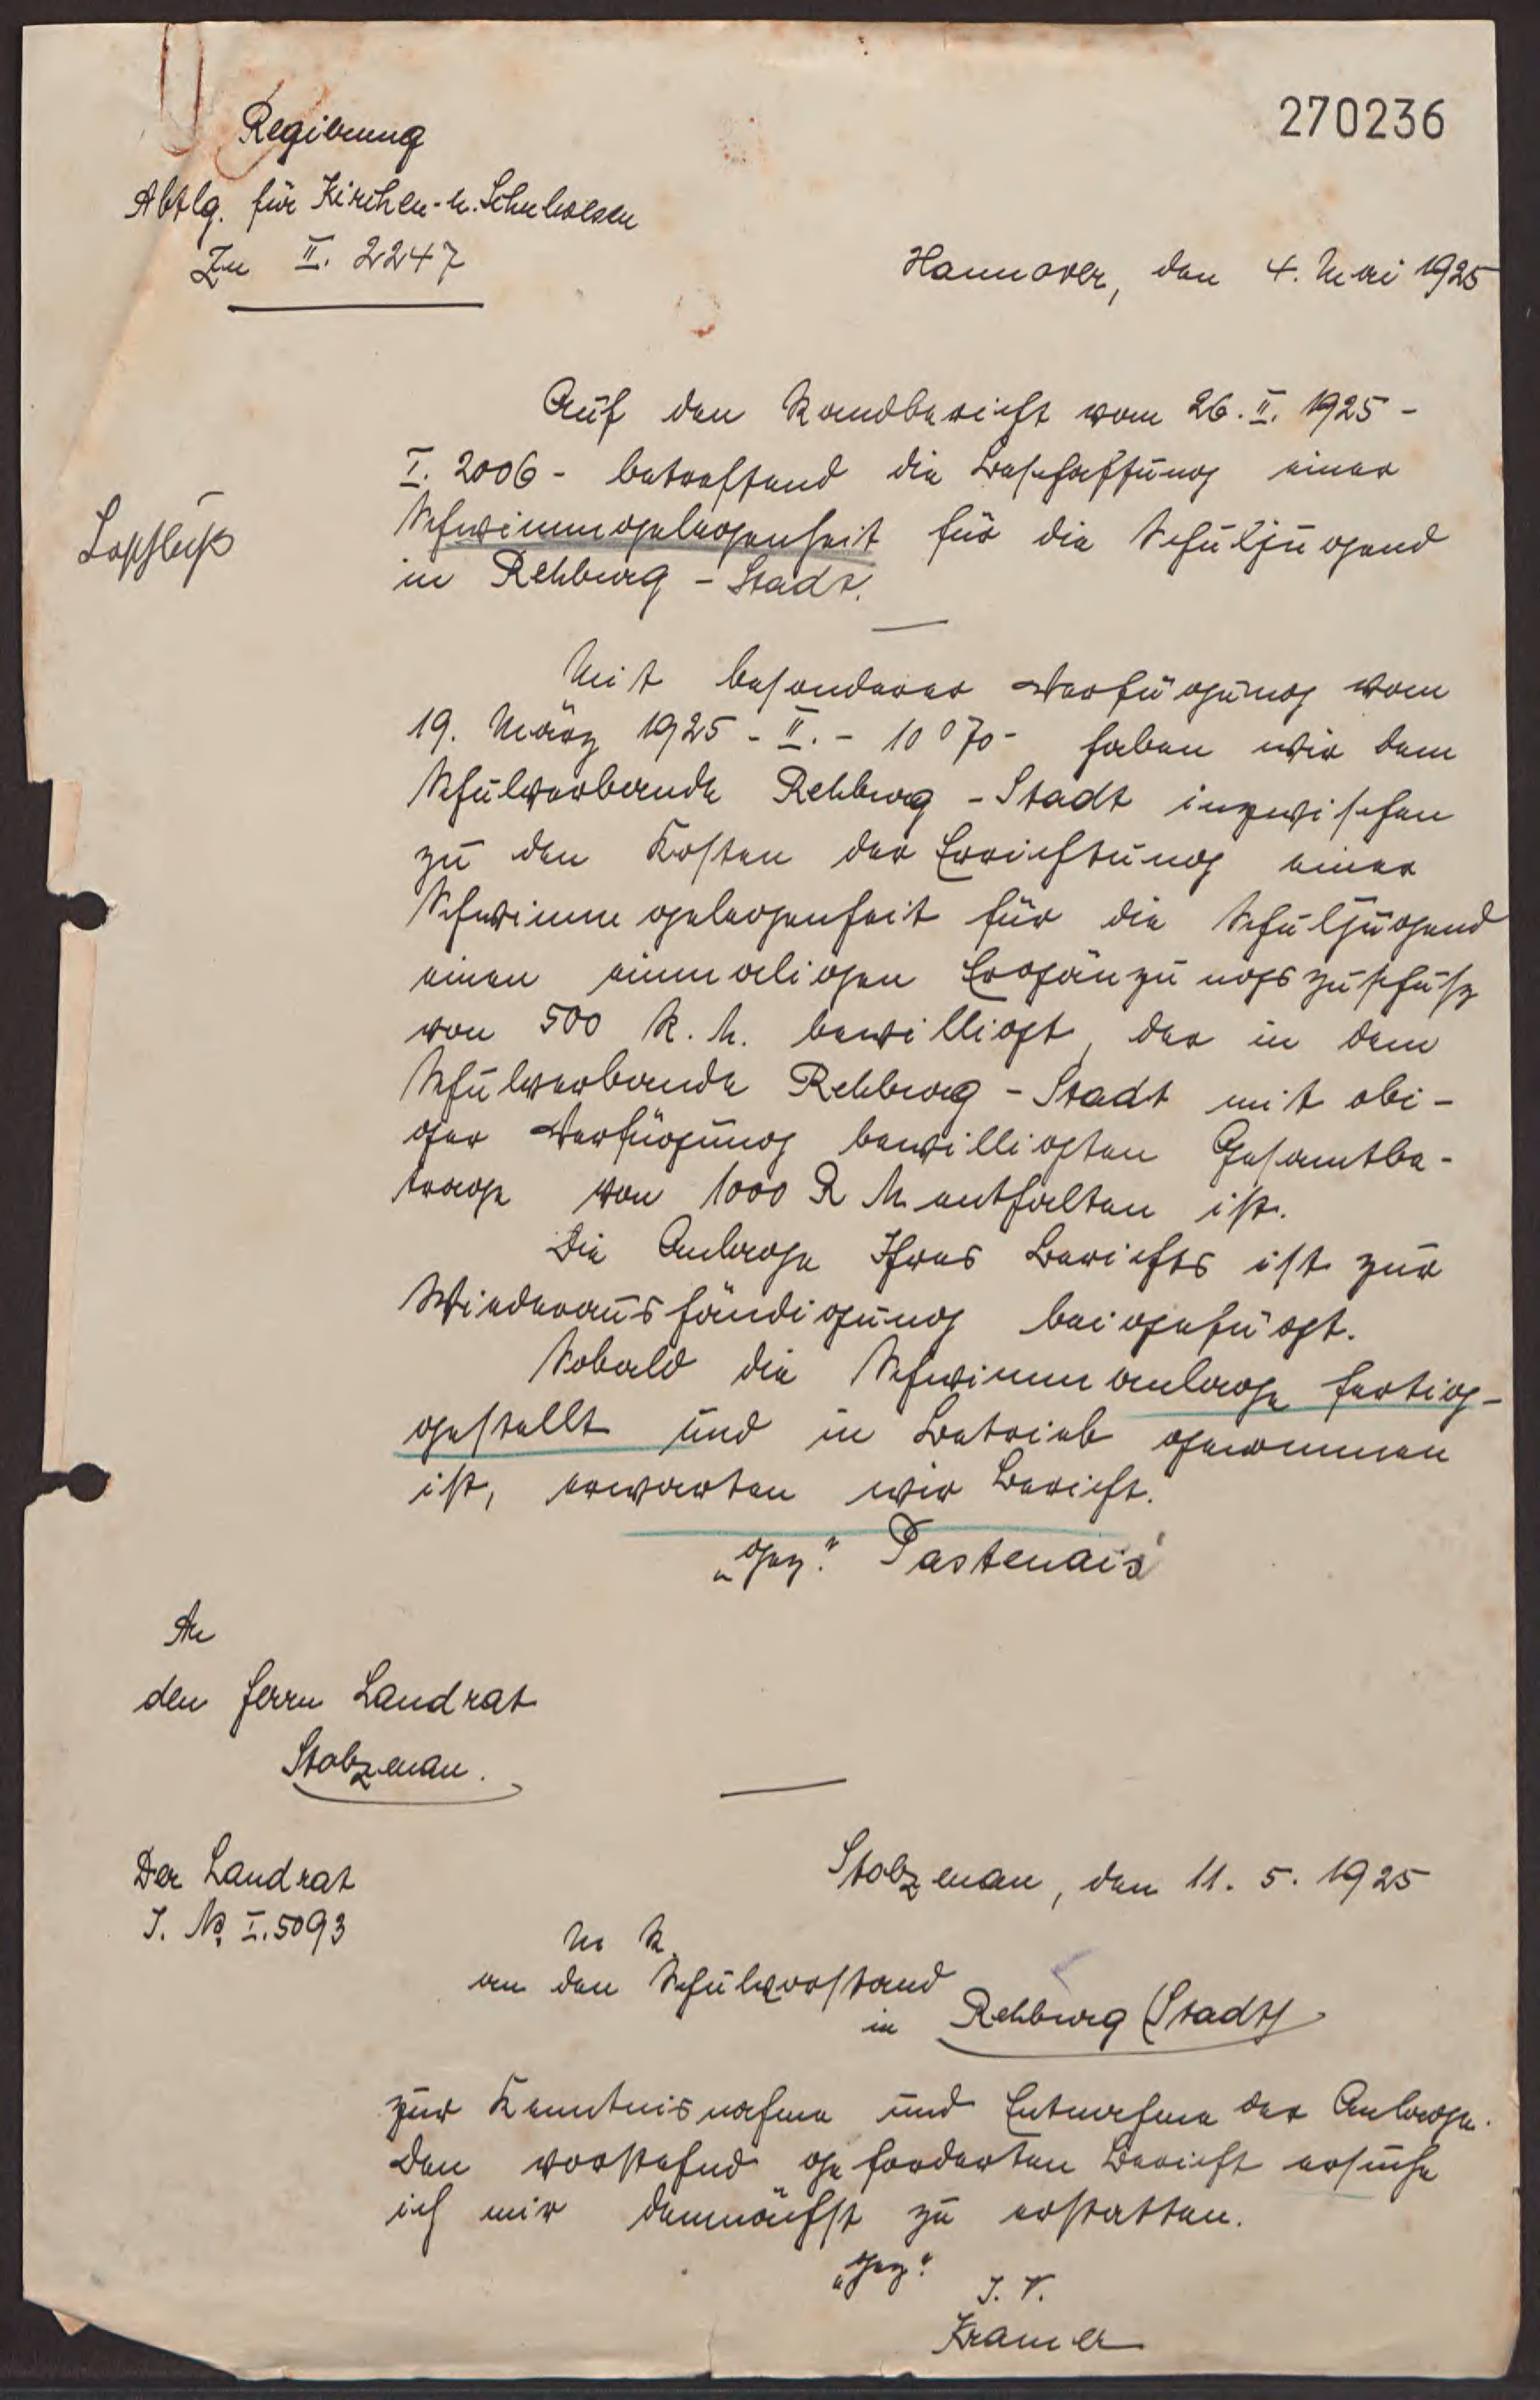 270236
Regierung
Abtlg. für Kirchen- u. Schulwesen
Zu II. 2247
Hannover, den 4. Mai 1925
Auf den Randbericht vom 26. II. 1925 -
I. 2006 - betreffend die Beschaffung einer
Schwimmgelegenheit für die Schuljugend
in Rehburg - Stadt.
Mit besonderer Verfügung vom
19. März 1925 - II. - 1070 - haben wir dem
Schulverbande Rehburg - Stadt inzwischen
zu den Kosten der Errichtung einer
Schwimmgelegenheit für die Schuljugend
einen einmaligen Ergänzungszuschuß
von 500 R. M. bewilligt, der in dem
Schulverbande Rehburg - Stadt mit obi-
ger Verfügung bewilligten Gesamtbe-
trage von 1000 R M enthalten ist.
Die Anlage Ihres Berichts ist zur
Wiederaushändigung beigefügt.
Sobald die Schwimmanlage fertig-
gestellt und in Betrieb genommen
ist, erwarten wir Bericht.
„gez." Pastenais
An
den Herrn Landrat
Stolzenau.
Der Landrat
J. No. I. 5093
Stolzenau, den 11. 5. 1925
U. R.
an den Schulvorstand
in Rehburg (Stadt)
zur Kenntnisnahme und Entnahme der Anlage.
Den vorstehend geforderten Bericht ersuche
ich mir demnächst zu erstatten.
„gez."
J. V.
Kramer